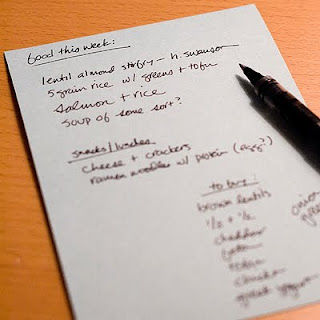 food this week:
lentil almond stirfry - h. swanson
5 grain rice w/ greens + tofu
salmon + rice
soup of some sort?
snacks/lunches
cheese + crackers
ramen noodles w/ protein (egg?)
to buy:
brown lentils
1/2 + 1/2
cheddar
greek yogurt